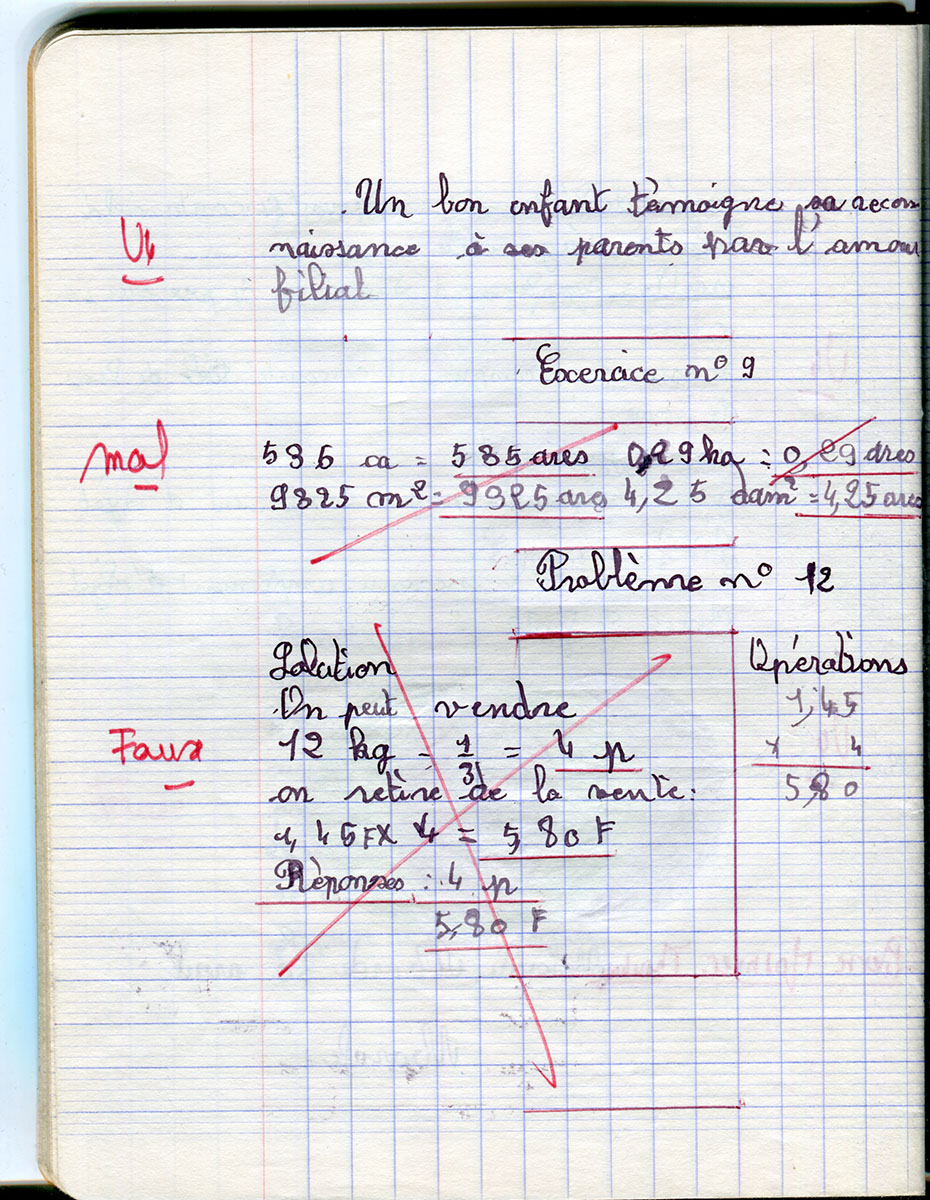 Un bon enfant témoigne sa recon
Vu
naissance à ses parents par l'amour
filial
Excercice n° 9
mal
535 ca = 535 ares 0,29 ha = 0,29 ares
9325 m² = 9325 ares 4,25 dam² = 4,25 ares
Problème n° 12
Solution
Opérations
On peut vendre
1,45
Faux
12 kg - 1/3 = 4 p
x 4
on retire de la vente:
5,80
1,45 F x 4 = 5,80 F
Réponses : 4 p
5,80 F